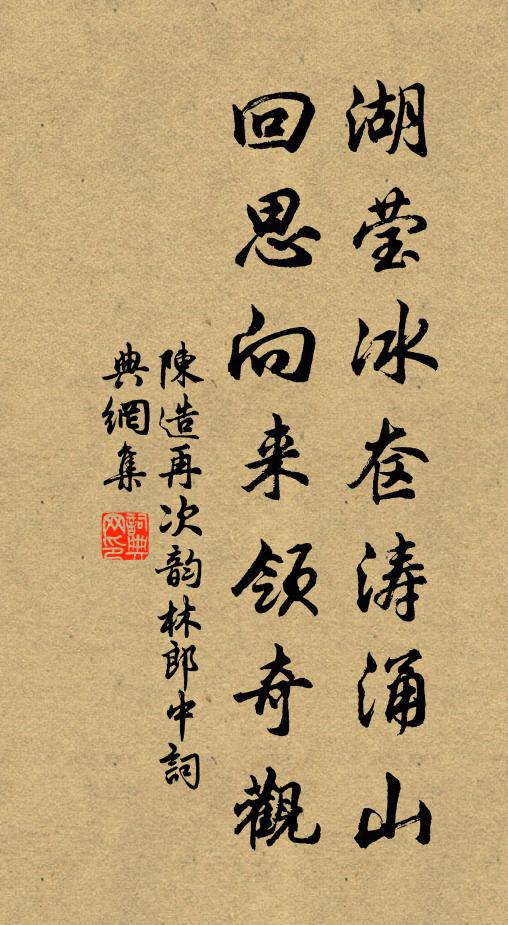 湖莹冰奁涛涌山
回思向来领奇觀
陳造再次韵林郎中詞
典網集
詞典网印